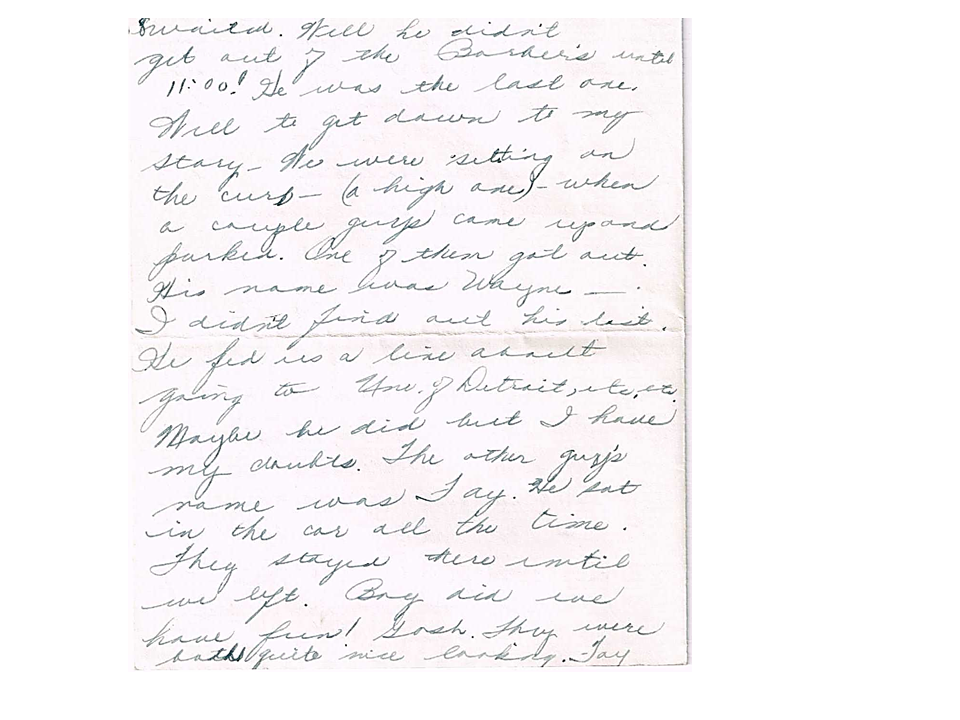 & waited. Well he didn't
get out of the Barber's until
11:00! He was the last one.
Well to get down to my
story - We were sitting on
the curb - (a high one) - when
a couple guys came up and
parked. One of them got out.
His name was Wayne — .
I didn't find out his last.
He fed us a line about
going to Uni. of Detroit, etc, etc.
Maybe he did but I have
my doubts. The other guy's
name was Jay. He sat
in the car all the time.
They stayed there until
we left. Boy did we
have fun! Gosh. They were
both quite nice looking. Jay